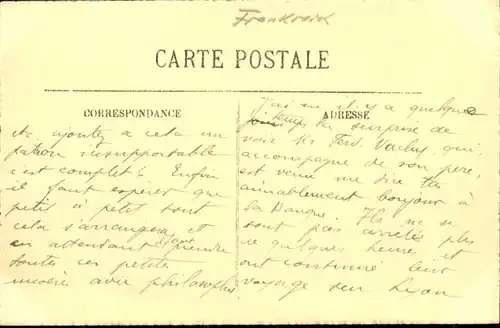 Frankreich
CARTE POSTALE
CORRESPONDANCE
etc. ajoutez a cela un
patron insupportable
c'est complet. Enfin
il faut espérer que
petit à petit tout
cela s'arrangera et
en attendant faut prendre
toutes ces petites
misère avec philosophie
ADRESSE
J'ai eu il y a quelque
temps la surprise de
voir Mr Ferd. Vachy, qui,
accompagne de son père,
est venu me dire très
aimablement bonjour à
la Banque. Ils ne se
sont pas arrêtés plus
de quelques heures et
ont continué leur
voyage sur Lyon